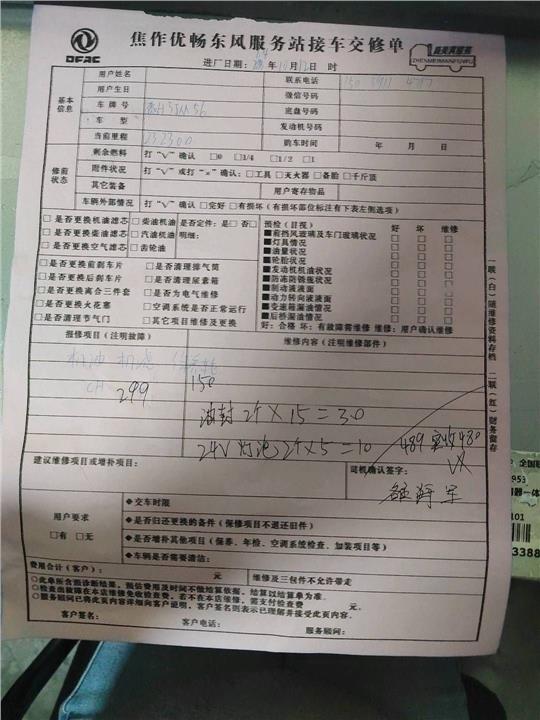 DFAC
焦作优畅东风服务站接车交修单
臻美真服务
ZHENMEIMANFUWU
进厂日期: 年10月12日 时
基本信息
用户姓名
联系电话
用户生日
微信号码
车牌号
底盘号码
车型
发动机号码
当前里程 232300
购车时间 年 月 日
修前状态
剩余燃料 打“√”确认 □0 □1/4 □1/2 □1
附件状况 打“√”或打“×”确认:□工具 □灭火器 □备胎 □千斤顶
其它装备
用户寄存物品
车辆外部情况 打“√”确认 □完好 □有损坏(有损坏部位标注有下表左侧选项)
□是否更换机油滤芯
□是否更换柴油滤芯
□是否更换空气滤芯
□柴油机油
□汽油机油
□齿轮油
是否定件:是□否□
明细:
□是否更换前刹车片
□是否更换后刹车片
□是否更换离合三件套
□是否更换火花塞
□是否清理节气门
□是否清理排气筒
□是否清理尿素箱
□是否为电气维修
□空调系统是否正常运行
□其它项目维修及更换
预检(目视) 好 坏 维修
■前挡风玻璃及车门玻璃状况 □ □ □
■灯具情况 □ □ □
■油量状况 □ □ □
■轮胎状况 □ □ □
■发动机机油状况 □ □ □
■防冻防锈瓶状况 □ □ □
■制动液液面 □ □ □
■动力转向液液面 □ □ □
■变速箱漏油情况 □ □ □
■后桥漏油情况 □ □ □
好:合格 坏:有故障需维修 维修:用户确认维修
报修项目(注明故障)
维修内容(注明维修部件)
机油 机滤
299 150
油封 2个×15=30
24V 灯泡 2个×5=10 489 实收480
建议维修项目或增补项目:
司机确认签字:
用户要求
□有 □无
◆交车时限
◆是否归还更换的备件(保修项目不退还旧件)
◆是否增补其他项目(保养、年检、空调系统检查、加装项目等)
◆车辆是否需要清洁:
费用合计(客户): 元
维修及三包件不允许带走
○此单所含预诊断结果,预估费用及时间不做结算依据,结算以结算单为准。
○检查出故障在本店维修免收检查费,若不在本店维修,需支付检查费 元。
○服务顾问已将此页内容详细向客户说明,客户签名则表示已理解并接受此页内容。
客户签名:
客户电话:
服务顾问:
一联(白)随维修资料存档 二联(红)财务留存
953
101
3388